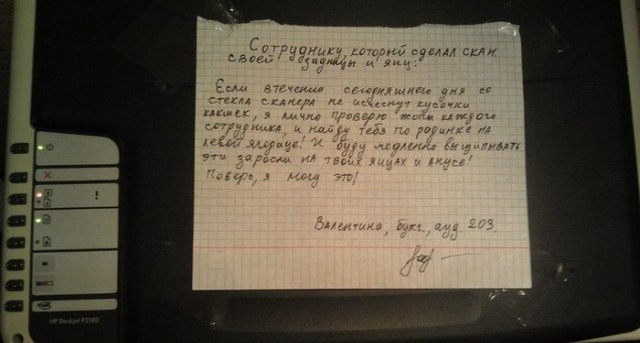 Сотруднику, который сделал скан
своей задницы и яиц:
Если втечении сегодняшнего дня со
стекла сканера не исчезнут кусочки
какшек, я лично проверю жопы каждого
сотрудника, и найду тебя по родинке на
левой ягодице! И буду медленно выщипывать
эти заросли на твоих яйцах и анусе!
Поверь, я могу это!
Валентина, бухг., ауд. 203.
HP Deskjet F2180